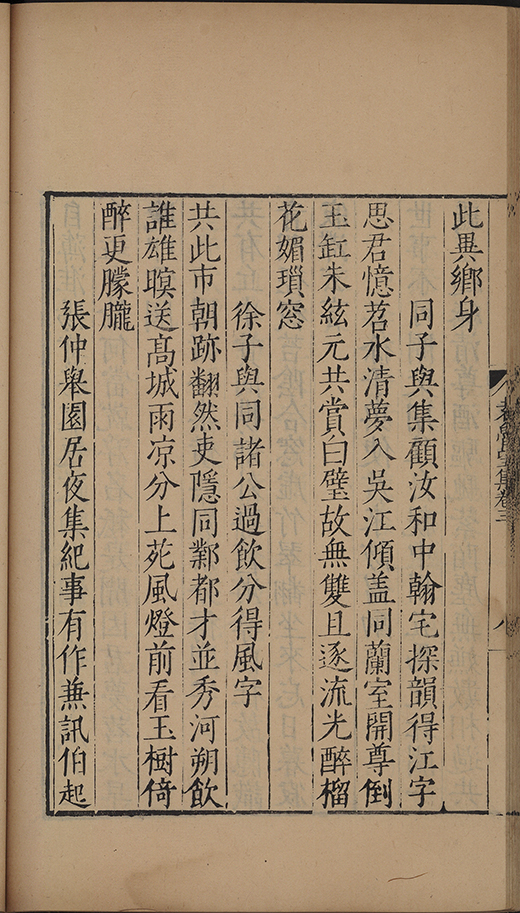 此異鄉身
同子與集顧汝和中翰宅探韻得江字
思君憶苕水清夢入吳江傾盖同蘭室開尊倒
玉缸朱絃元共賞白璧故無雙且逐流光醉榴
花媚瑣窓
徐子與同諸公過飲分得風字
共此市朝跡翻然吏隱同鄴都才並秀河朔飲
誰雄暝送高城雨凉分上苑風燈前看玉樹倚
醉更朦朧
張仲舉園居夜集紀事有作兼訊伯起
集卷三
八